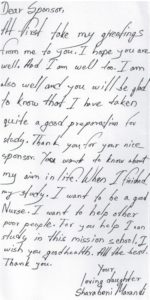 Dear Sponsor,
At first take my greetings
from me to you. I hope you are
well. And I am well too. I am
also well and you will be glad
to know that I have taken
quite a good preparation for
study. Thank you for your nice
sponsor. You want to know about
my aim in life. When I finished
my study. I want to be a good
Nurse. I want to help other
poor people. For you help I can
study in this mission school. I
wish you good health. All the best.
Thank you.
Your
loving daughter
Sharaboni Marandi